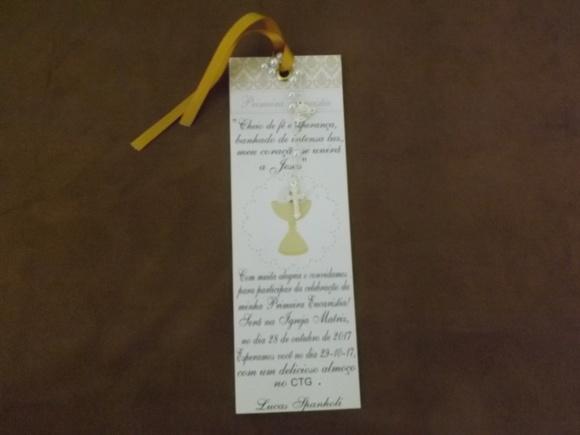 Primeira Eucaristia
"Cheio de fé e esperança,
banhado de intensa luz,
meu coração se unirá
a Jesus"
Com muita alegria o convidamos
para participar da celebração da
minha Primeira Eucaristia!
Será na Igreja Matriz,
no dia 28 de outubro de 2017
Esperamos você no dia 29-10-17,
com um delicioso almoço
no CTG .
Lucas Spanholi